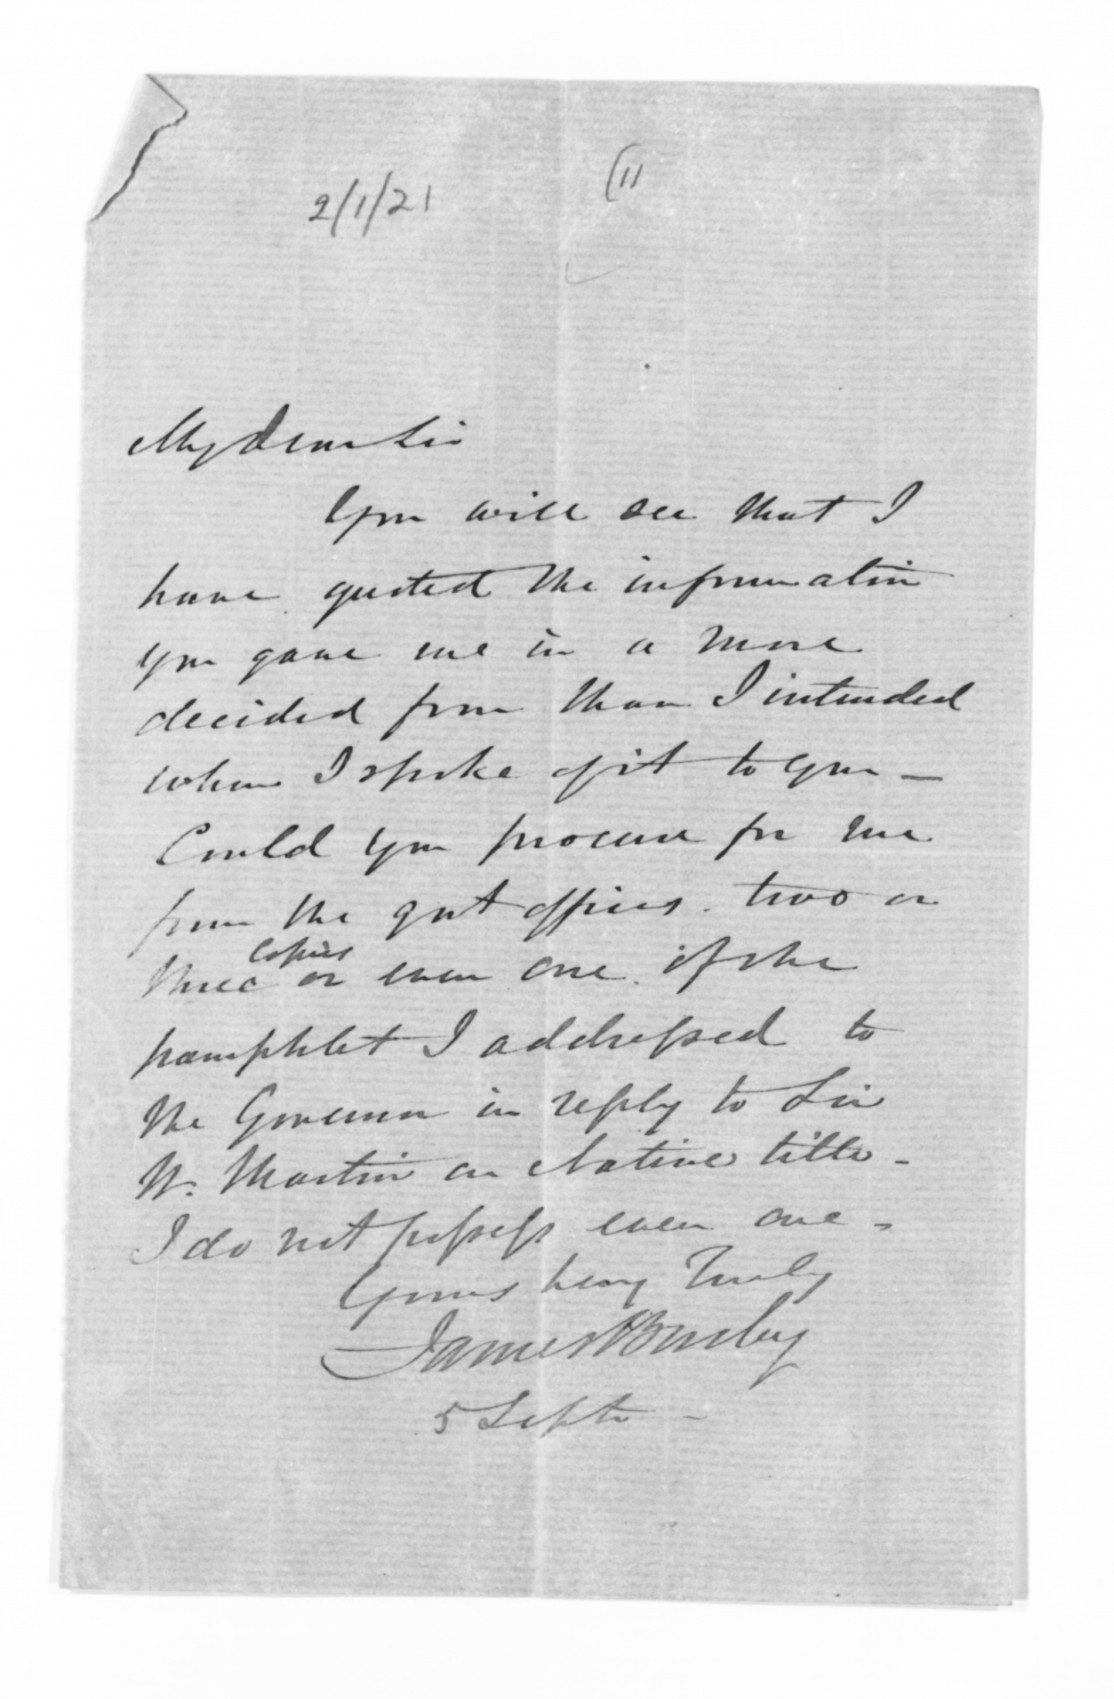 2/1/21
(11
My dear Sir
You will see that I
have quoted the information
you gave me in a more
decided form than I intended
when I spoke of it to you —
Could you procure for me
from the govt offices two or
copies
three or even one of the
pamphlet I addressed to
the Governor in reply to Sir
W. Martin on Native title -
I do not possess even one -
Yours very Truly
James Busby
5 Septr -